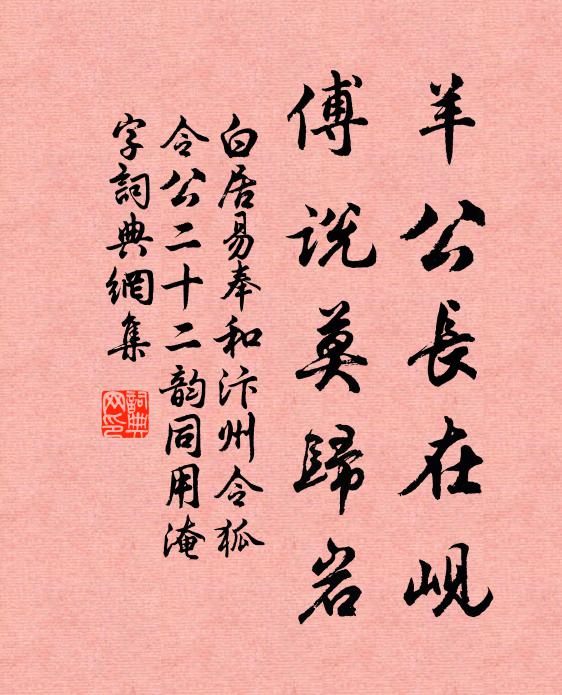 羊公長在峴
傅說莫歸岩
白居易奉和汴州令狐
令公二十二韵同用淹
字詞典網集
詞典
网印